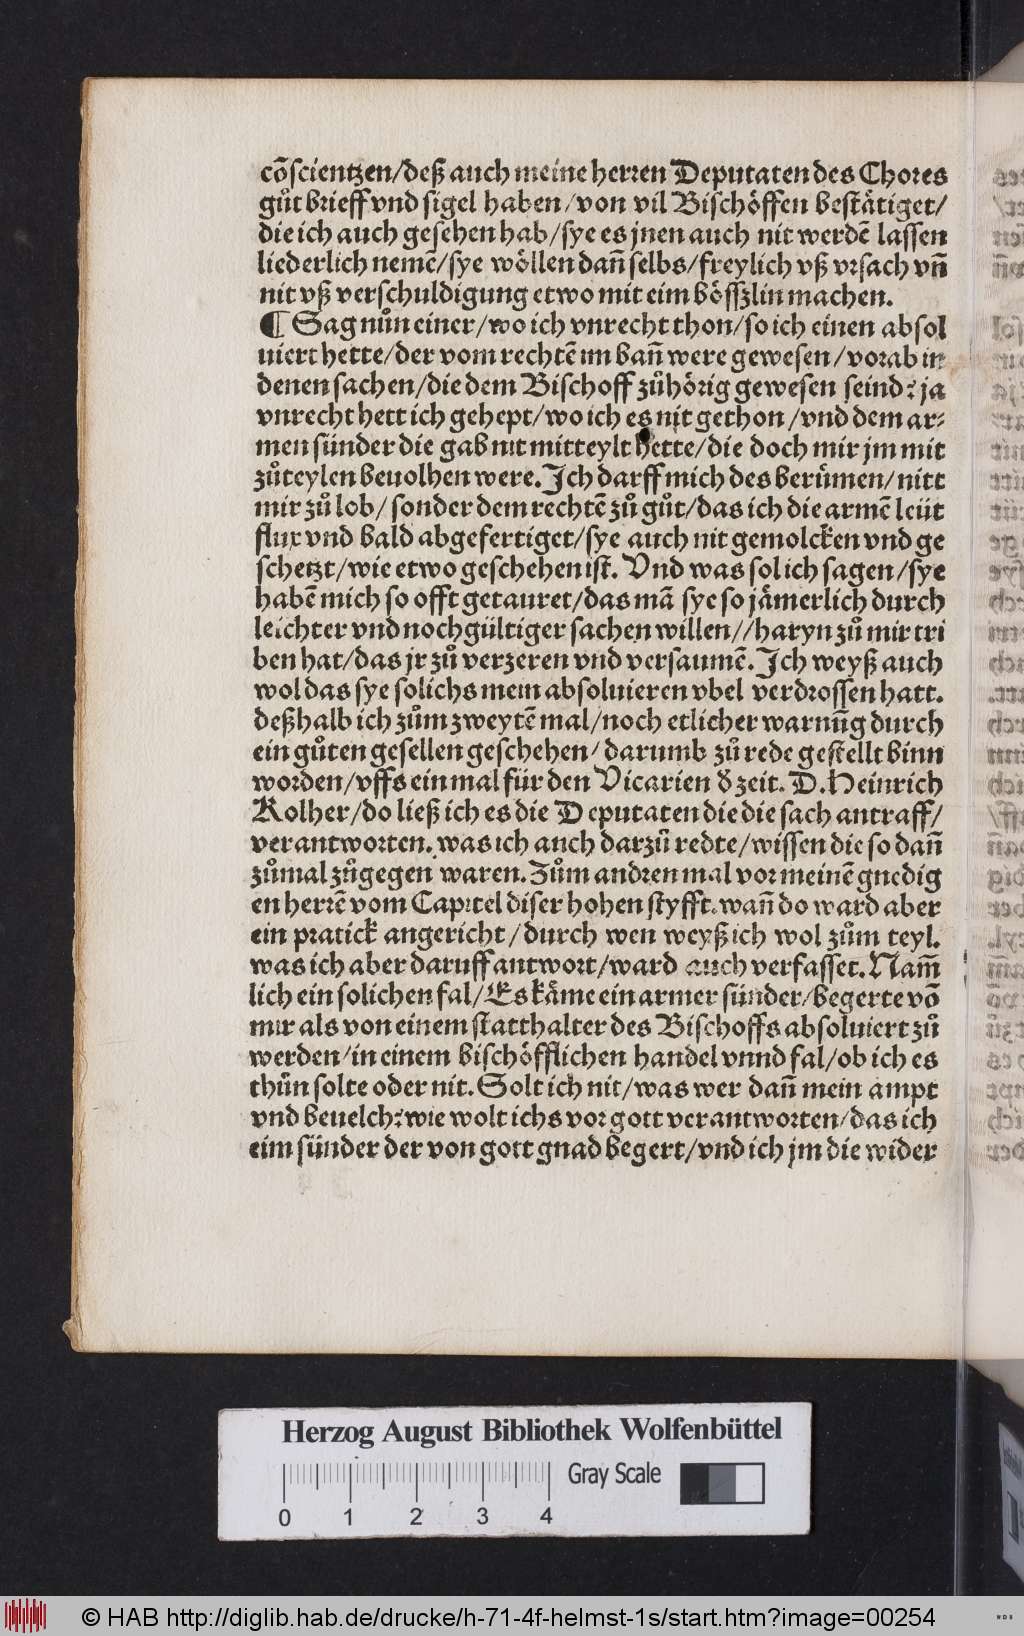 cõscientzen/deß auch meine herren Deputaten des Chores
gůt brieff vnd sigel haben/von vil Bischöffen bestätiget/
die ich auch gesehen hab/sye es jnen auch nit werdē lassen
liederlich nemē/sye wöllen dañ selbs/freylich vß vrsach vñ
nit vß verschuldigung etwo mit eim bösszlin machen.
¶ Sag nůn einer/wo ich vnrecht thon/so ich einen absol
uiert hette/der vom rechtē im bañ were gewesen/vorab in
denen sachen/die dem Bischoff zůhörig gewesen seind? ja
vnrecht hett ich gehept/wo ich es nit gethon/vnd dem ar⸗
men sünder die gab nit mitteylt hette/die doch mir jm mit
zůteylen beuolhen were. Ich darff mich des berůmen/nitt
mir zů lob/sonder dem rechtē zů gůt/das ich die armē leüt
flux vnd bald abgefertiget/sye auch nit gemolcken vnd ge
schetzt/wie etwo geschehen ist. Vnd was sol ich sagen/sye
habē mich so offt getauret/das mã sye so jämerlich durch
leichter vnd nochgültiger sachen willen//haryn zů mir tri
ben hat/das jr zů verzeren vnd versaumē. Ich weyß auch
wol das sye solichs mein absoluieren vbel verdrossen hatt.
deßhalb ich zům zweytē mal/noch etlicher warnũg durch
ein gůten gesellen geschehen/darumb zů rede gestellt binn
worden/vffs ein mal für den Vicarien ð zeit. D. Heinrich
Kolher/do ließ ich es die Deputaten die die sach antraff/
verantworten. was ich auch darzů redte/wissen die so dañ
zůmal zůgegen waren. Zům andren mal vor meinē gnedig
en herrē vom Capitel diser hohen styfft. wañ do ward aber
ein pratick angericht/durch wen weyß ich wol zům teyl.
was ich aber daruff antwort/ward auch verfasset. Nam̃
lich ein solichen fal/Es käme ein armer sünder/begerte võ
mir als von einem statthalter des Bischoffs absoluiert zů
werden/in einem bischöfflichen handel vnnd fal/ob ich es
thůn solte oder nit. Solt ich nit/was wer dañ mein ampt
vnd beuelch? wie wolt ichs vor gott verantworten/das ich
eim sünder der von gott gnad begert/vnd ich jm die wider
Herzog August Bibliothek Wolfenbüttel
Gray Scale
0 1 2 3 4
© HAB http://diglib.hab.de/drucke/h-71-4f-helmst-1s/start.htm?image=00254